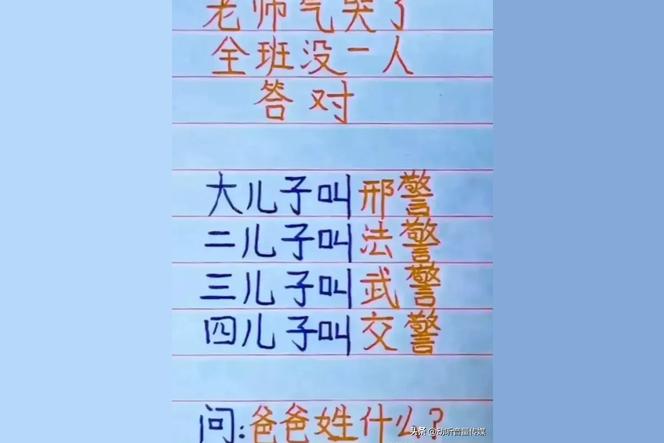 老师气哭了
全班没一人
答对
大儿子叫邢警
二儿子叫法警
三儿子叫武警
四儿子叫交警
问:爸爸姓什么?
头条 @动听音画传媒